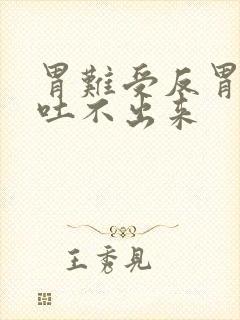 胃難受反胃
吐不出来
王秀見